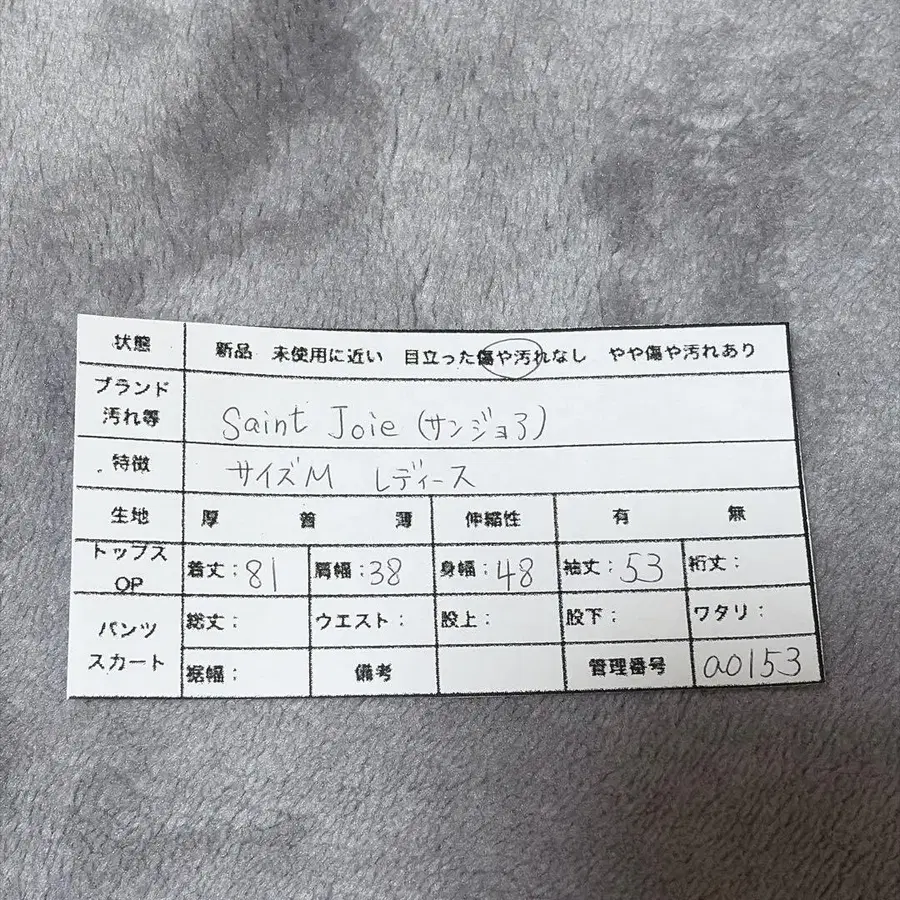 状態 新品 未使用に近い 目立った傷や汚れなし やや傷や汚れあり
ブランド
汚れ等
Saint Joie (サンジョア)
特徴 サイズM レディース
生地 厚 普 薄 伸縮性 有 無
トップス
OP
着丈:81 肩幅:38 身幅:48 袖丈:53 裄丈:
パンツ
スカート
総丈: ウエスト: 股上: 股下: ワタリ:
裾幅: 備考 管理番号 a0153